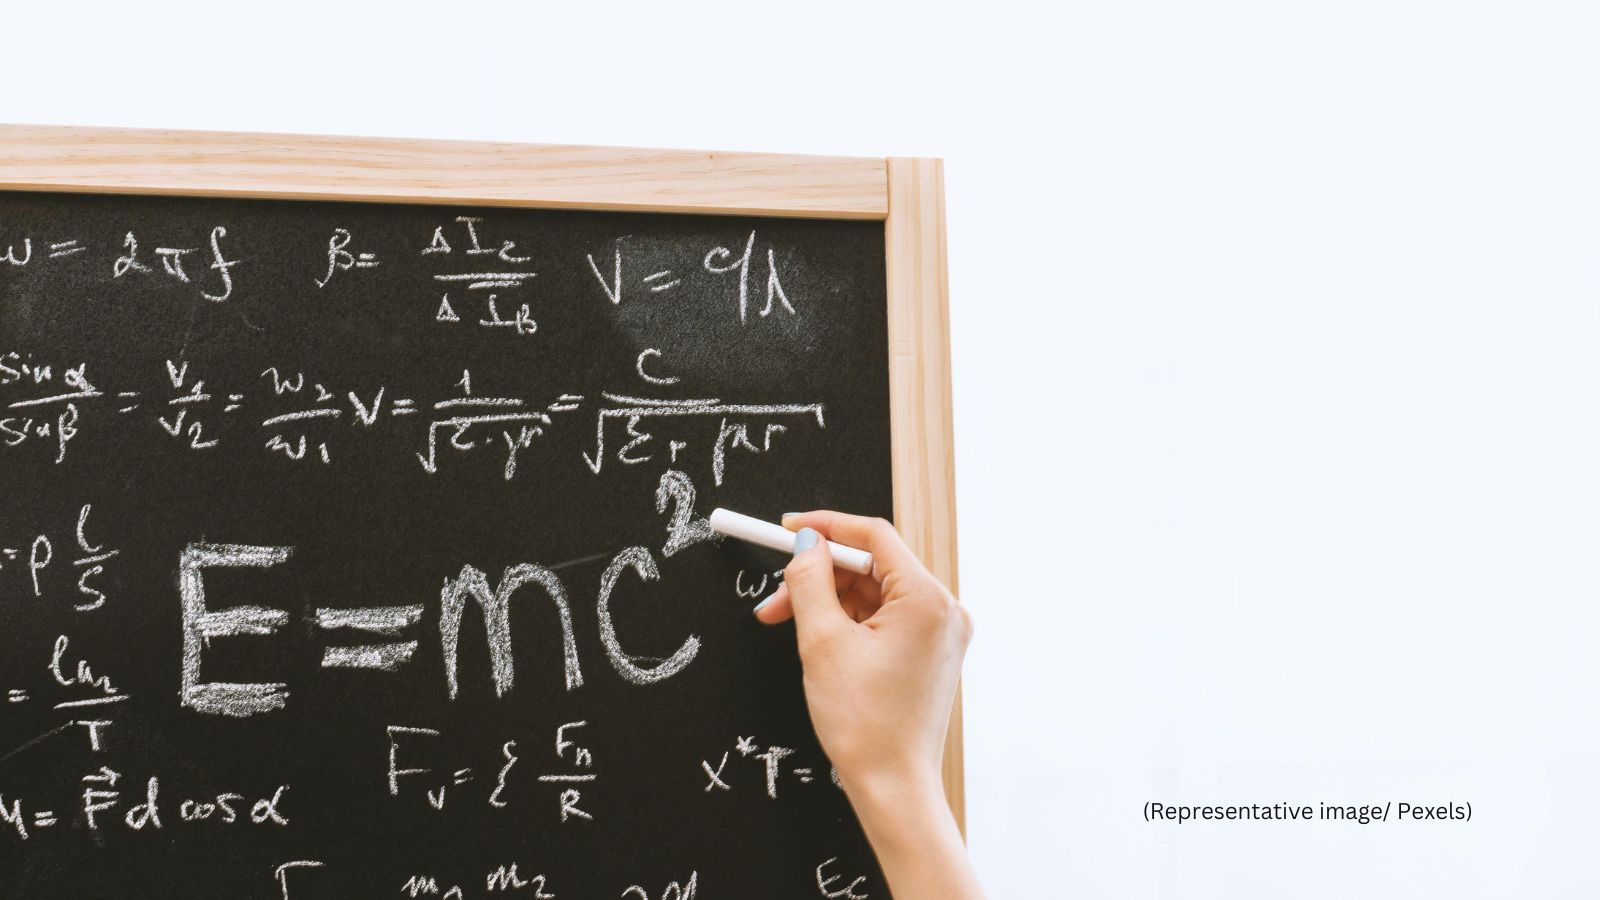 ω = 2πf   β = ΔI_C / ΔI_B   V = qλ
sin α / sin β = v₁ / v₂ = n₂ / n₁   V = 1 / √(ε·μ) = c / √(εr μr)
= ρ l / S
E = mc²
ω =
ln₂ / T
F_v = { F_n / R   x*T =
M = F⃗ d cos α
m₁ m₂
E_C
(Representative image/ Pexels)